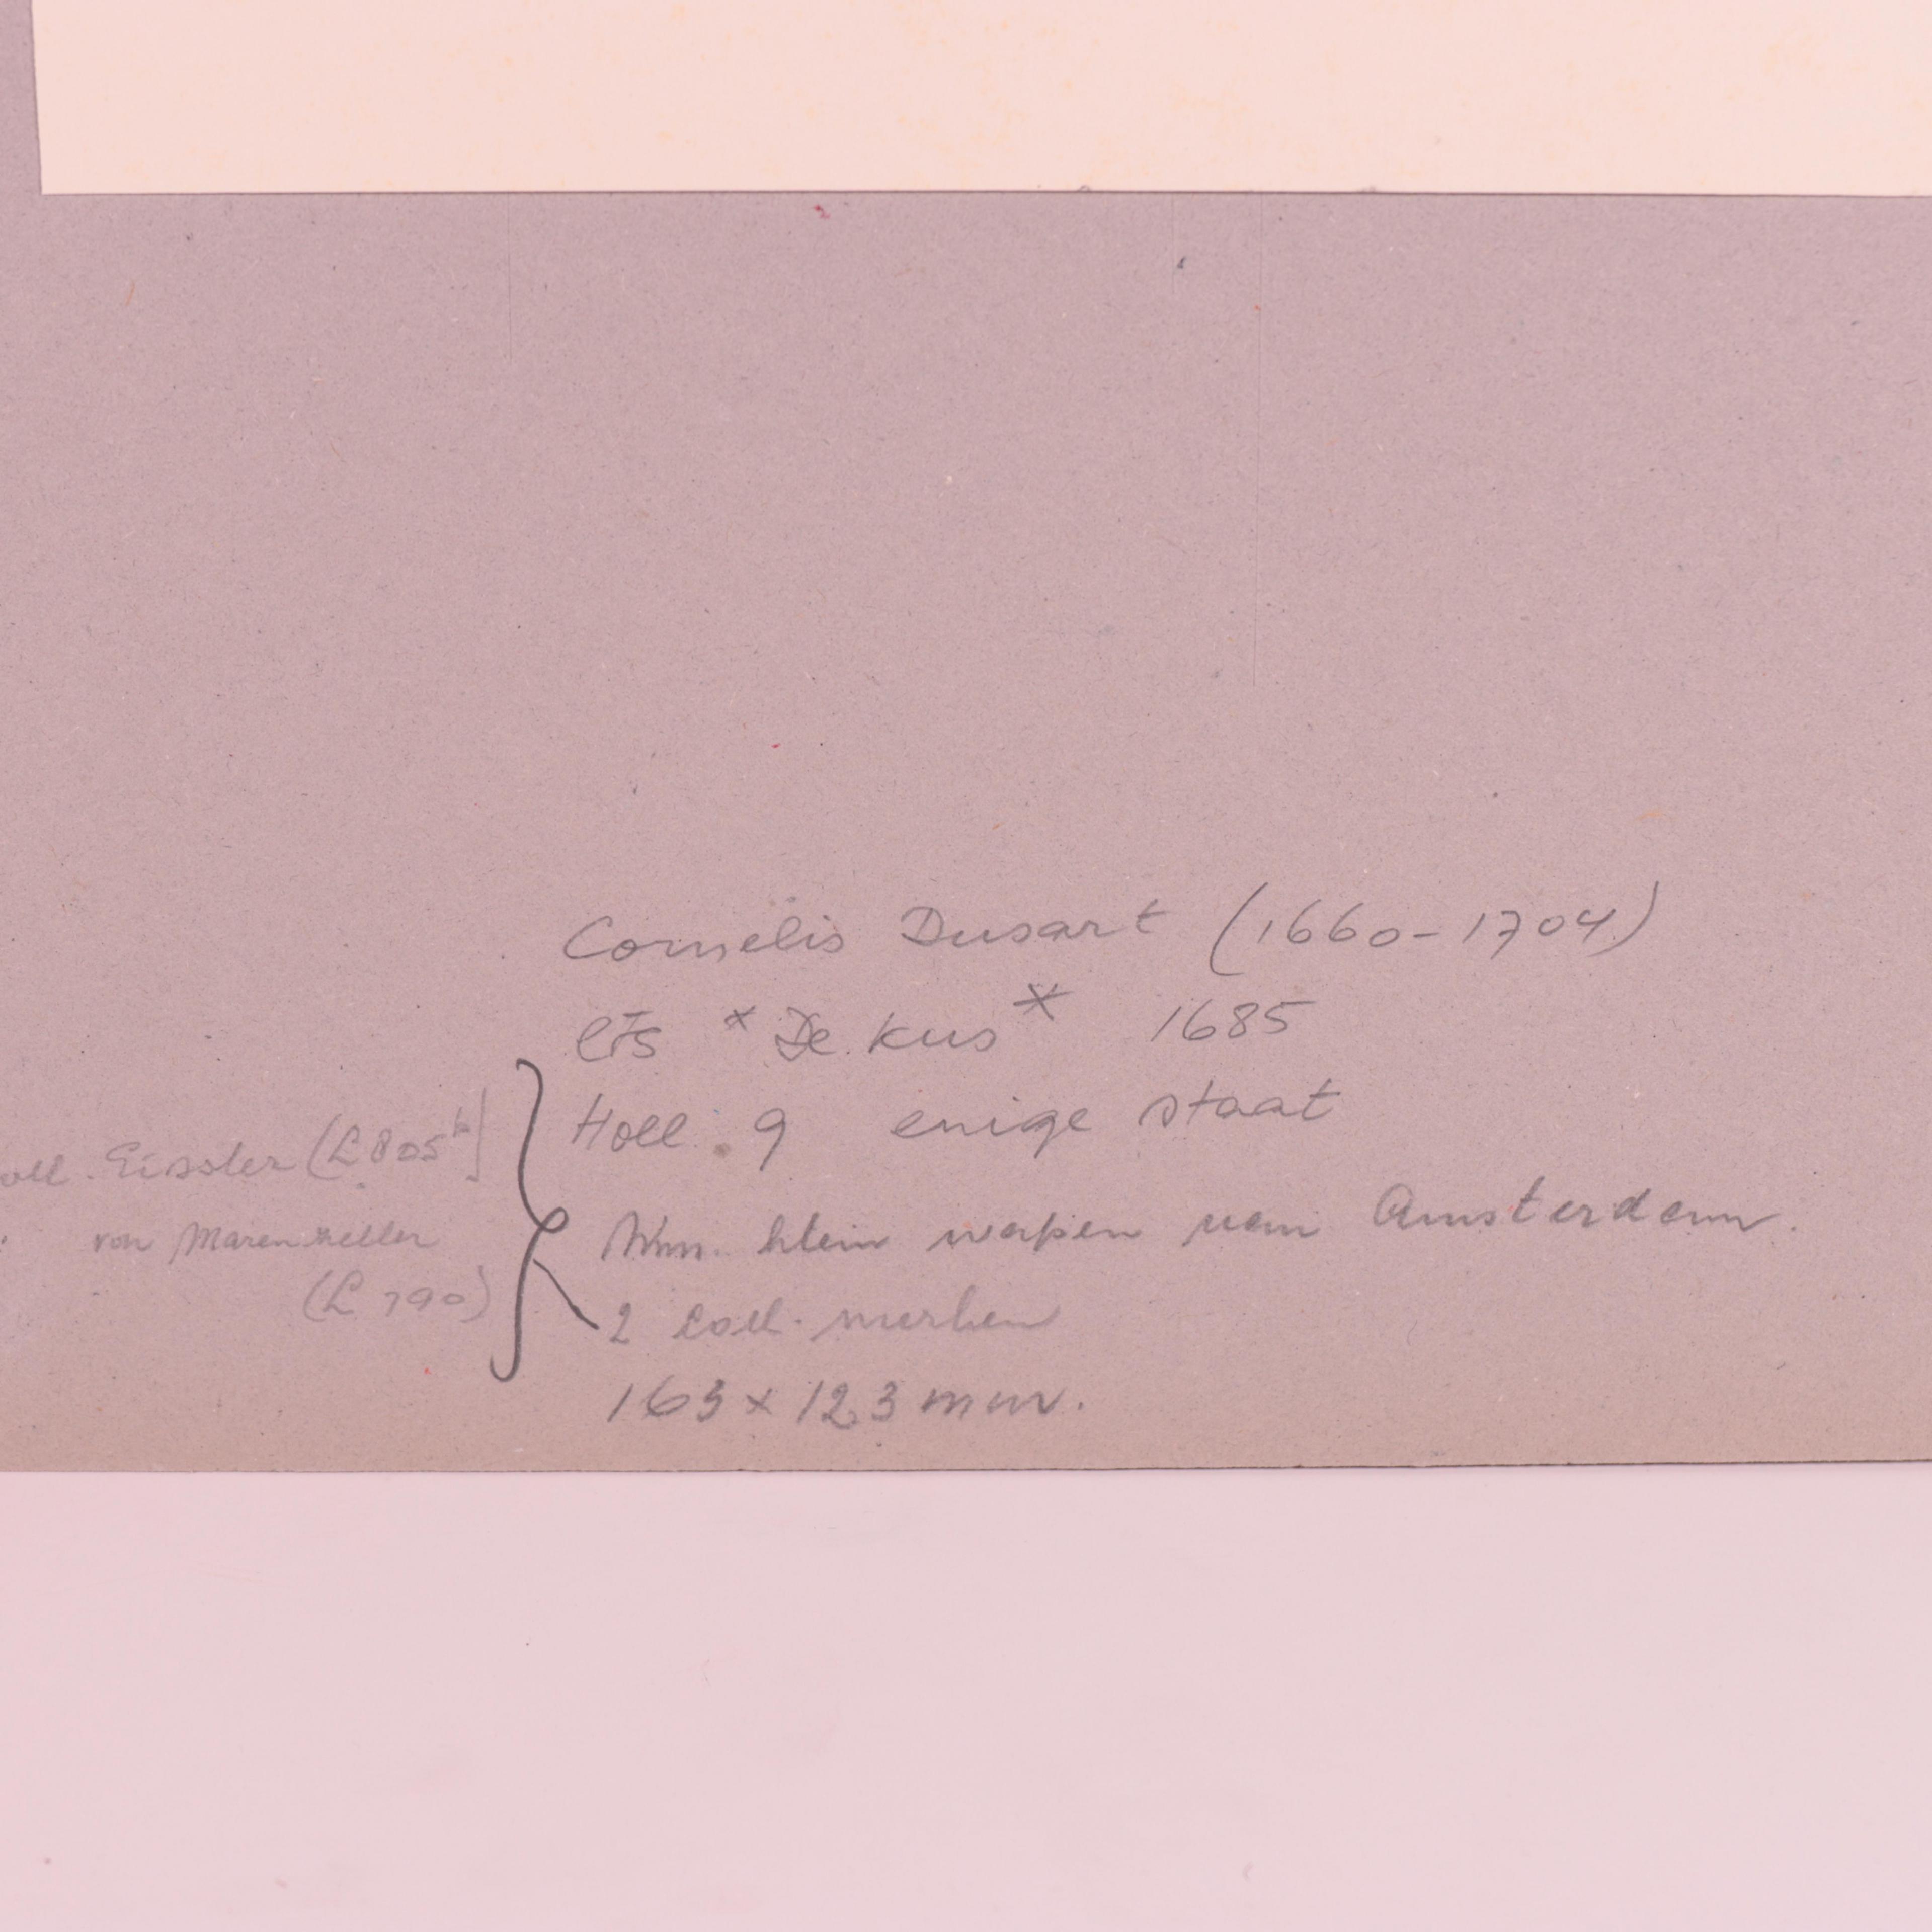 Cornelis Dusart (1660-1704)
ets "De kus" 1685
Holl. 9 enige staat
Wm. klein wapen van Amsterdam.
2 coll. merken
163 x 123 mm.
coll. Eissler (L 805b)
von Marenzeller
(L 790)